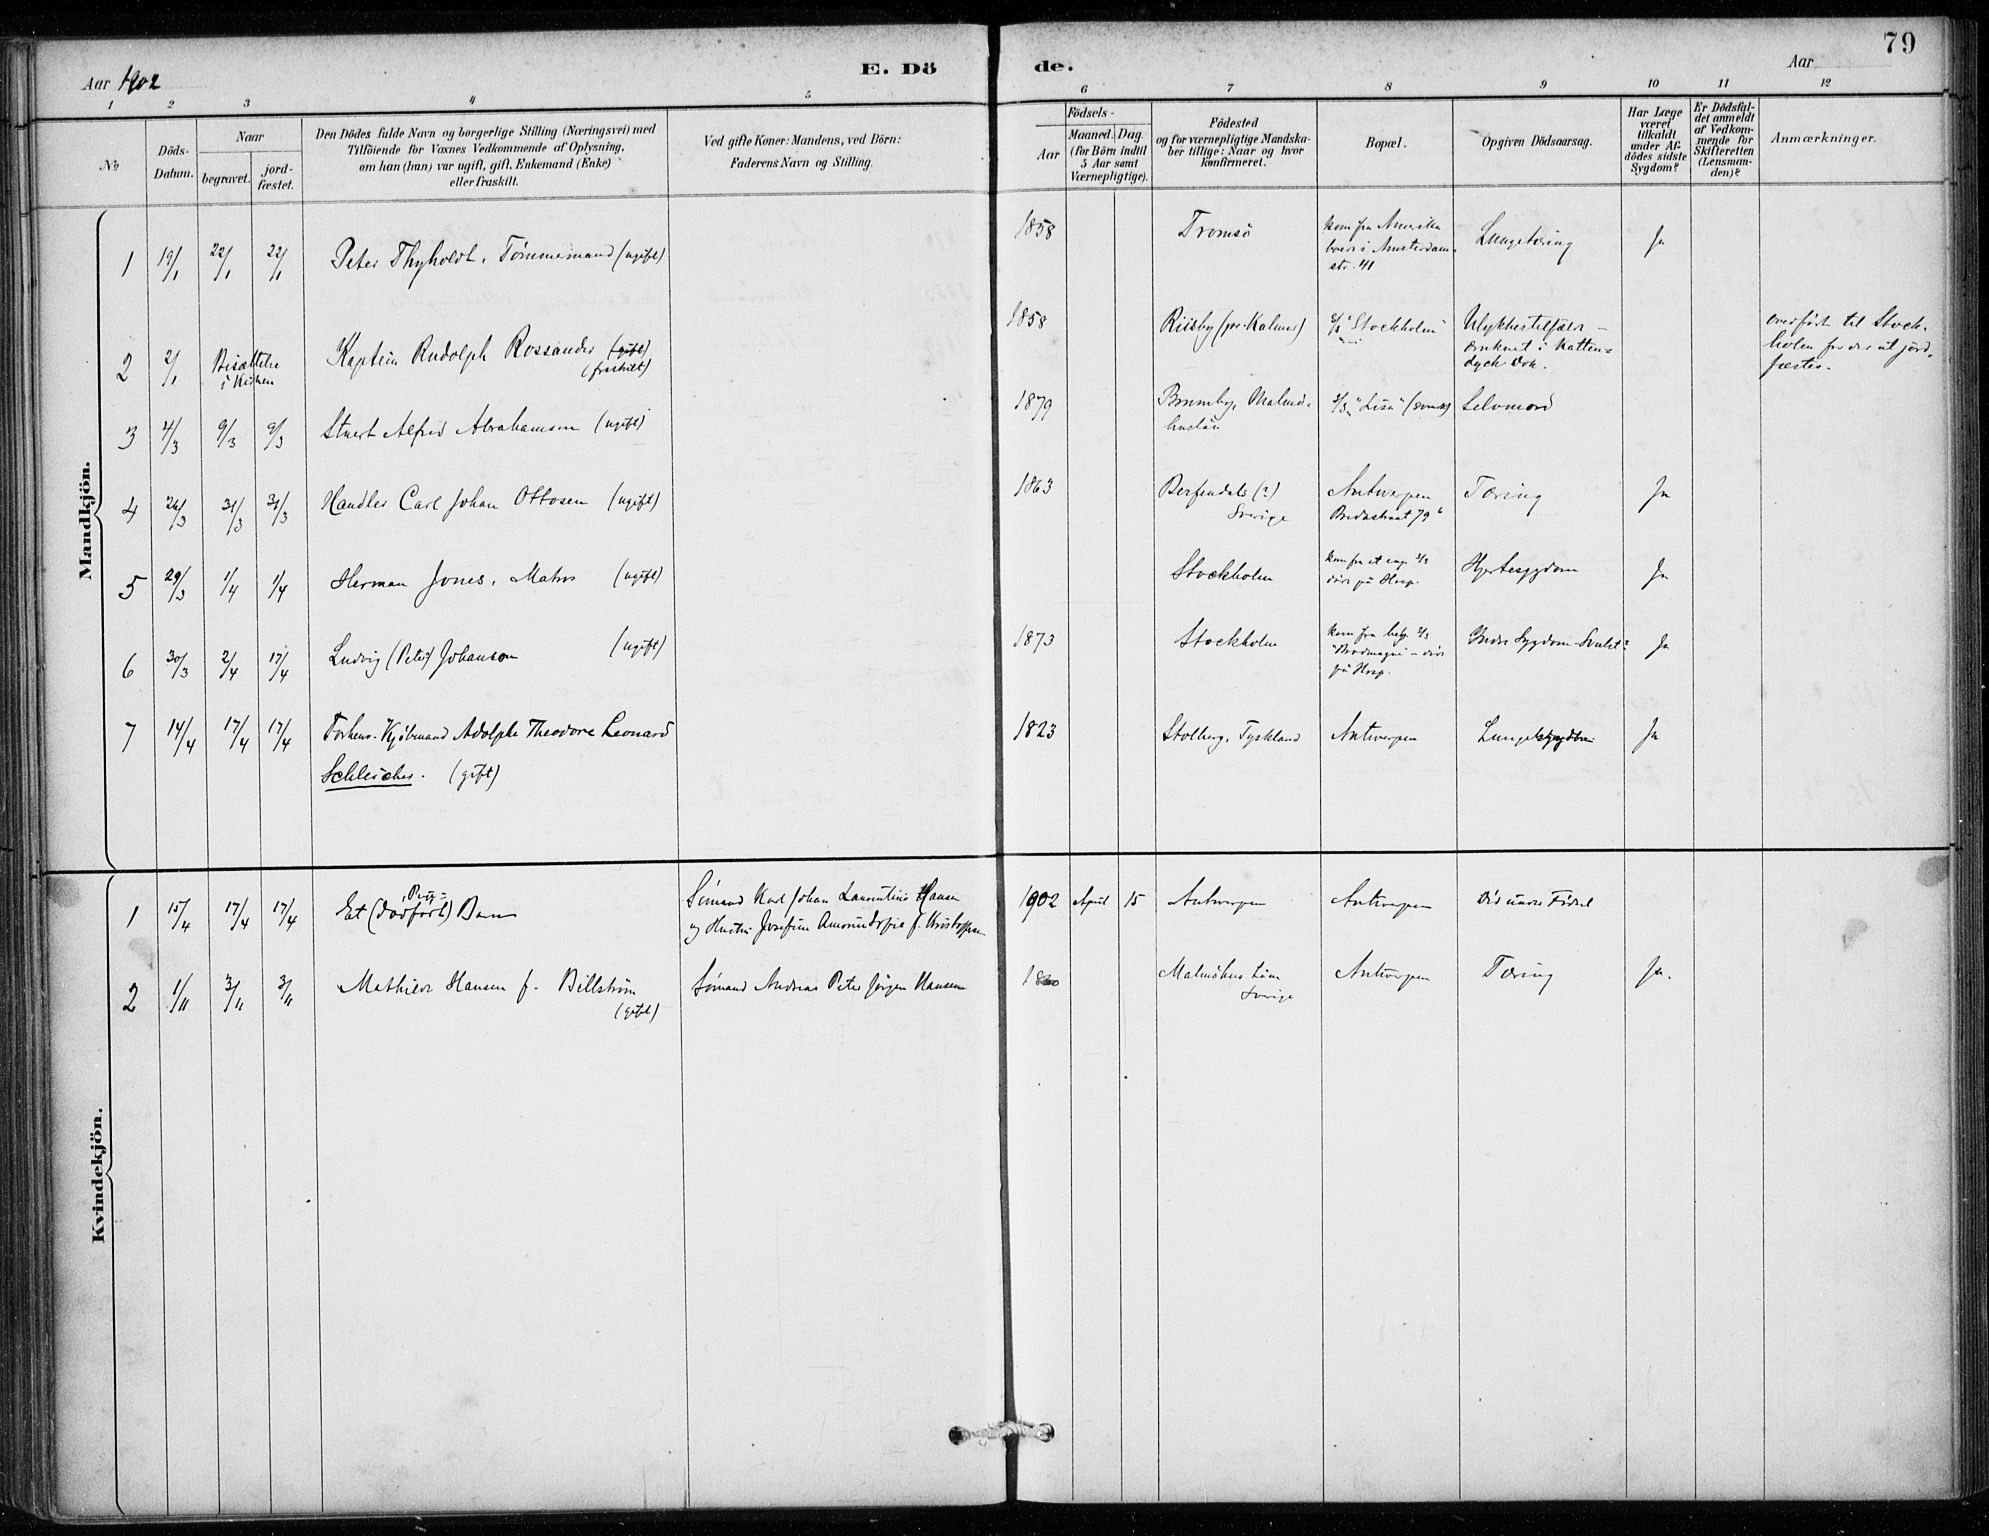 79
Aar 1902
E. Dö
de.
Aar
1 2 3 4 5 6 7 8 9 10 11 12
No
Döds-
Datum.
Naar
begravet.
jord-
fæstet.
Den Dödes fulde Navn og borgerlige Stilling (Næringsvei) med
Tilföiende for Voxnes Vedkommende af Oplysning,
om han (hun) var ugift, gift, Enkemand (Enke)
eller fraskilt.
Ved gifte Koner: Mandens, ved Börn:
Faderens Navn og Stilling.
Födsels-
Aar
Maaned. Dag.
(for Börn indtil
5 Aar samt
Værnepligtige).
Födested
og for værnepligtige Mandska-
ber tillige: Naar og hvor
konfirmeret.
Bopæl.
Opgiven Dödsaarsag.
Har Læge
været
tilkaldt
under Af-
dödes sidste
Sygdom?
Er Dödsfal-
det anmeldt
af Vedkom-
mende for
Skifteretten
(Lensman-
den)?
Anmærkninger.
Mandkjön.
1 19/1 22/1 22/1 Peter Thyholdt. Tömmermand (ugift) 1858 Tromsö
kom fra Amerika
boede i Amsterdam
str. 41
Lungetæring Ja
2 2/1 Bisættelse
i Kirken
Kaptein Rudolph Rossander (gift)
(fraskilt)
1858 Riisby (pr. Kalmar) S/S "Stockholm"
Ulykkestilfælde -
druknet i Katten-
dyck Dok.
overført til Stock-
holm for der at jord-
fæstes.
3 4/3 9/3 9/3 Stuert Alfred Abrahamson (ugift) 1879
S/S "Lisa" (svensk) Selvmord
4 26/3 31/3 31/3 Handler Carl Johan Ottosen (ugift) 1863 Berfendals (?)
Sverige
Antwerpen
Bredastraat 79
Tæring Ja
5 29/3 1/4 1/4 Herman Jones, Matros (ugift) Stockholm
kom fra et eng. S/S
döde på Hosp.
Hjertesygdom Ja
6 30/3 2/4 17/4 Ludvig (Peter) Johanson (ugift) 1873 Stockholm
kom fra belg. S/S
på Hosp.
Ja
7 14/4 17/4 17/4 Forhenv. Kjöbmand Adolphe Theodore Leonard
Schleicher. (gift)
1823 Stolberg, Tyskland Antwerpen Lungebetændelse Ja
Kvindekjön.
1 15/4 17/4 17/4 Et (dødfødt) Pige-
Barn
Sömand Karl Johan Laurentius Hansen
og Hustru Josefine f. Kristoffersen
1902 April 15 Antwerpen Antwerpen Död under Födsel
2 1/11 3/11 3/11 Mathilde Hansen f. Billström
(gift)
Sömand Andreas Peter Jörgen Hansen
Malmöhus Län
Sverige
Antwerpen Tæring Ja.